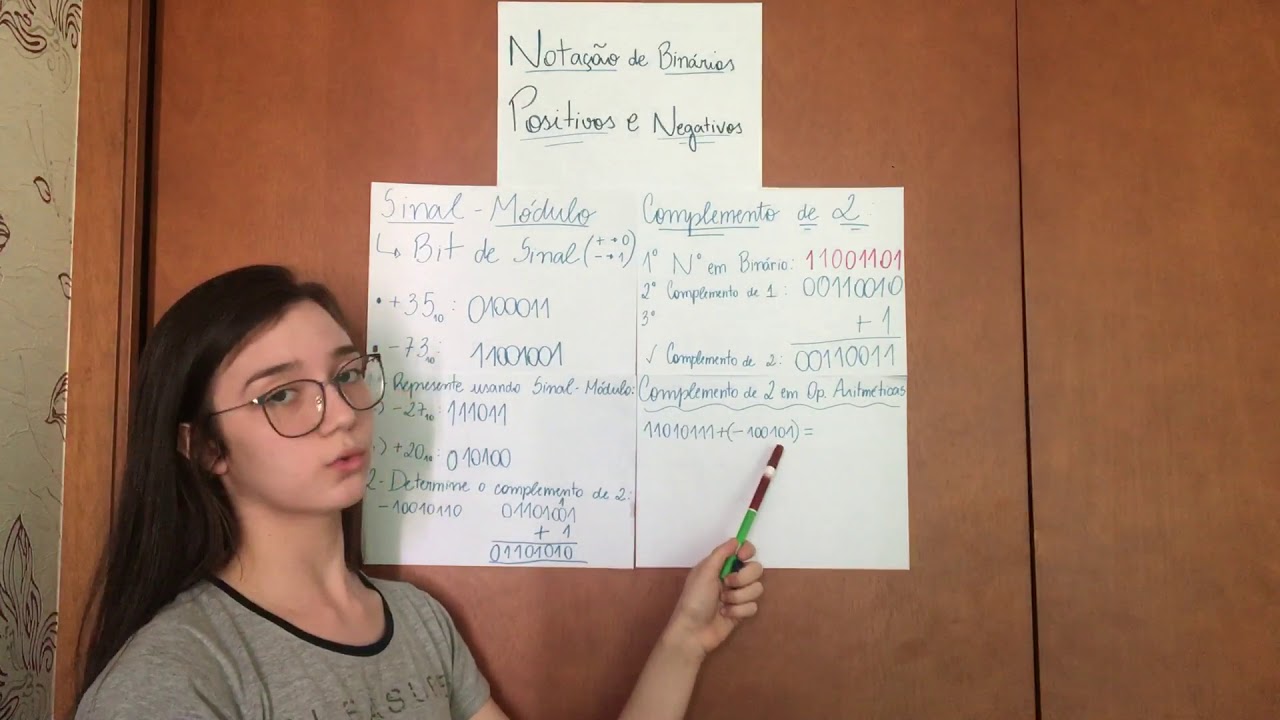 Notação de Binários
Positivos e Negativos
Sinal - Módulo
↳ Bit de Sinal (+→0
-→1)
• +35₁₀: 0100011
• -73₁₀: 11001001
Represente usando Sinal-Módulo:
) -27₁₀: 111011
) +20₁₀: 010100
2- Determine o complemento de 2:
-10010110
01101001
1
+ 1
01101010
Complemento de 2
1º Nº em Binário: 11001101
2º Complemento de 1: 00110010
3º + 1
✓ Complemento de 2: 00110011
Complemento de 2 em Op. Aritméticas
11010111+(-100101)=